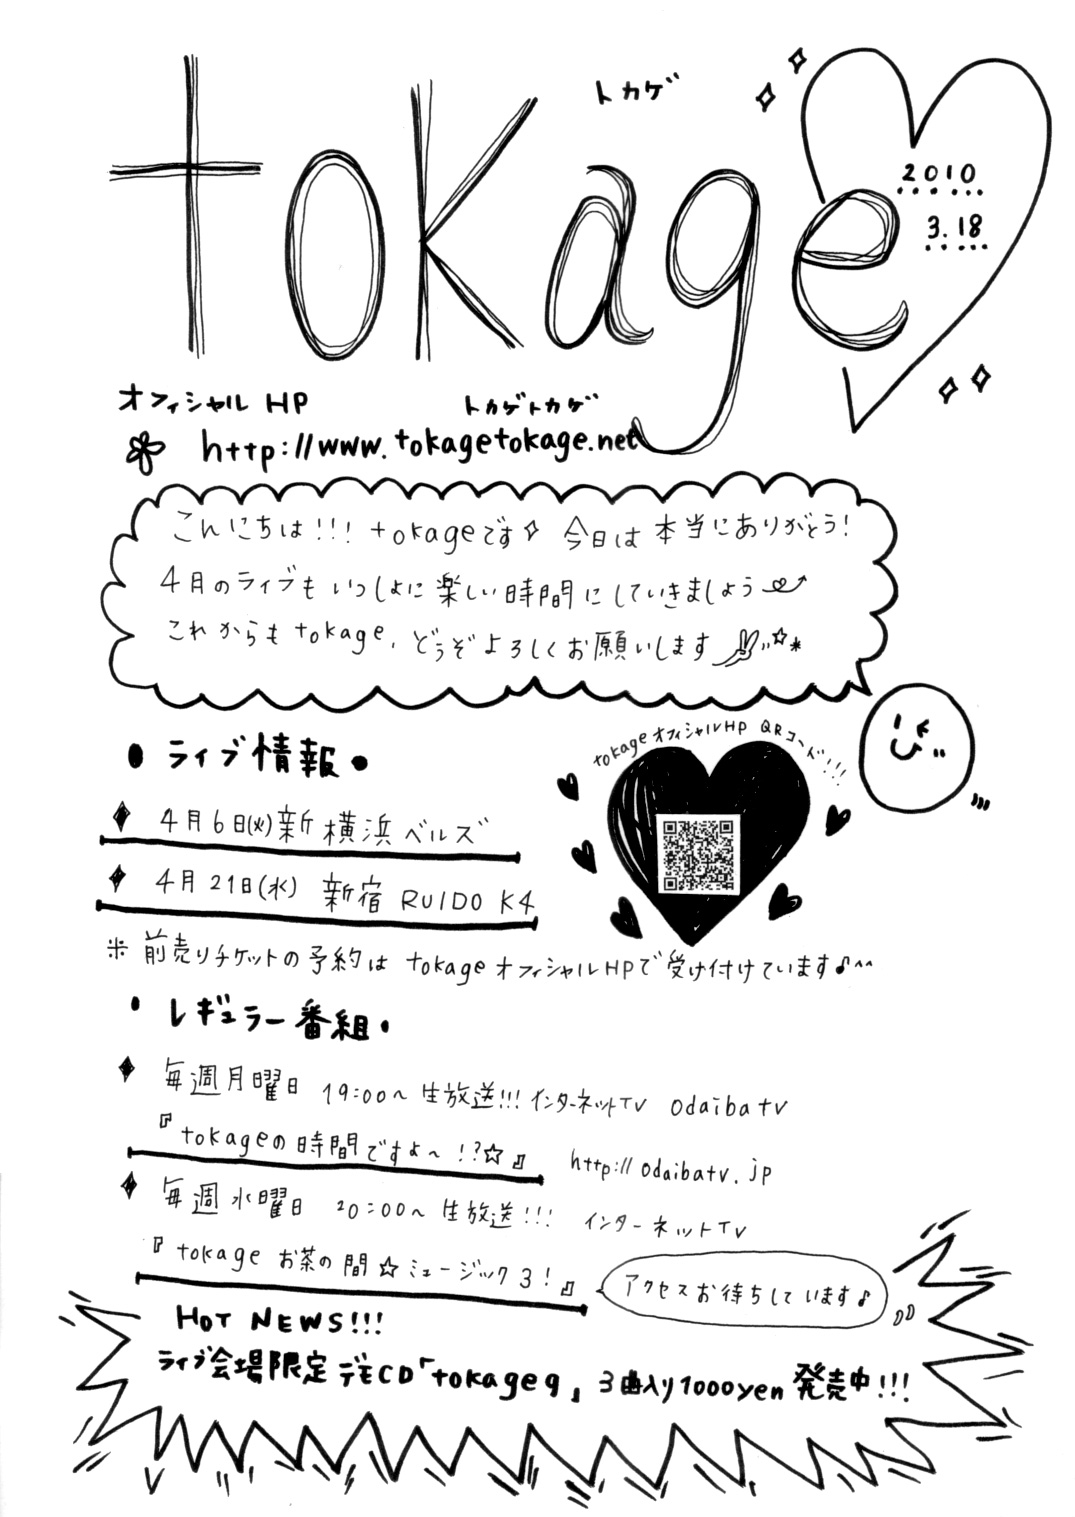 トカゲ
tokage
2010
3.18
オフィシャル HP
トカゲトカゲ
http://www.tokagetokage.net
こんにちは!!! tokageです 今日は本当にありがとう!
4月のライブもいっしょに楽しい時間にしていきましょう
これからもtokage, どうぞよろしくお願いします
ライブ情報
tokageオフィシャルHP QRコード!!!
4月6日(火)新横浜ベルズ
4月21日(水) 新宿 RUIDO K4
※前売りチケットの予約は tokageオフィシャルHPで受け付けています♪^^
・レギュラー番組・
毎週月曜日 19:00~ 生放送!!! インターネットTV odaibatv
『tokageの時間ですよ~!?☆』 http://odaibatv.jp
毎週水曜日 20:00~ 生放送!!! インターネットTV
『tokage お茶の間☆ミュージック3!』
アクセスお待ちしています♪
HOT NEWS!!!
ライブ会場限定 デモCD「tokage9」3曲入り1000yen 発売中!!!